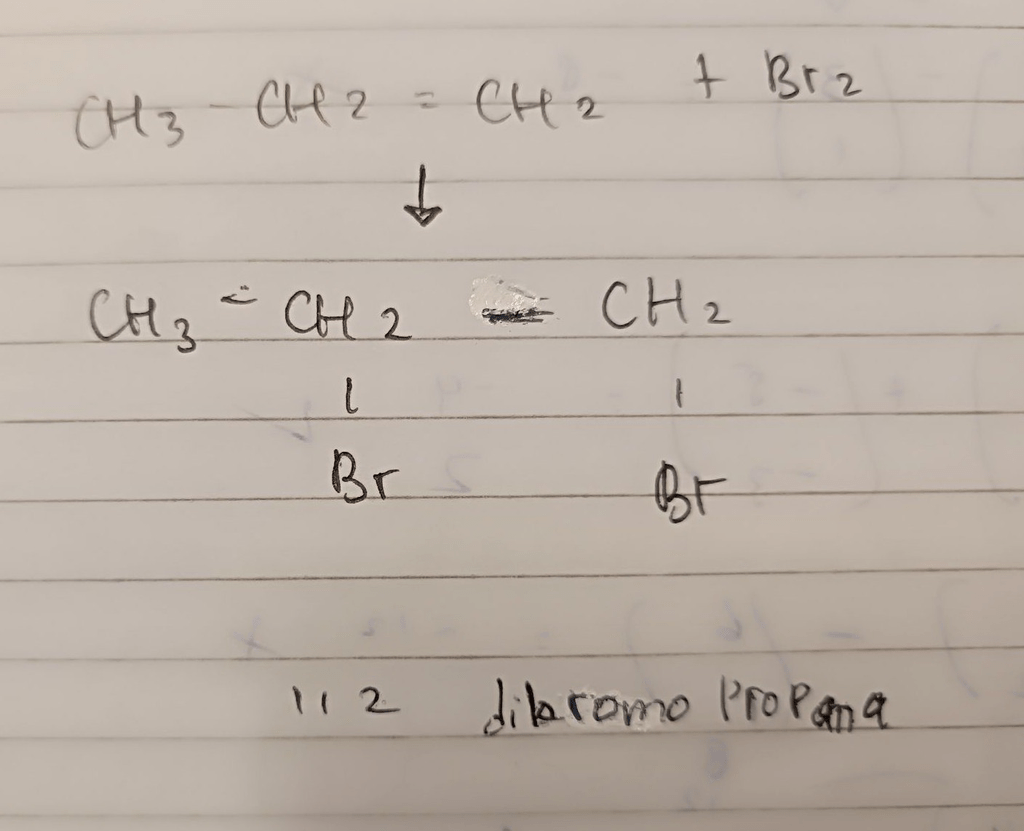 CH3 - CH2 = CH2 + Br2
↓
CH3 = CH2 = CH2
| |
Br Br
1,2 dibromo Propana